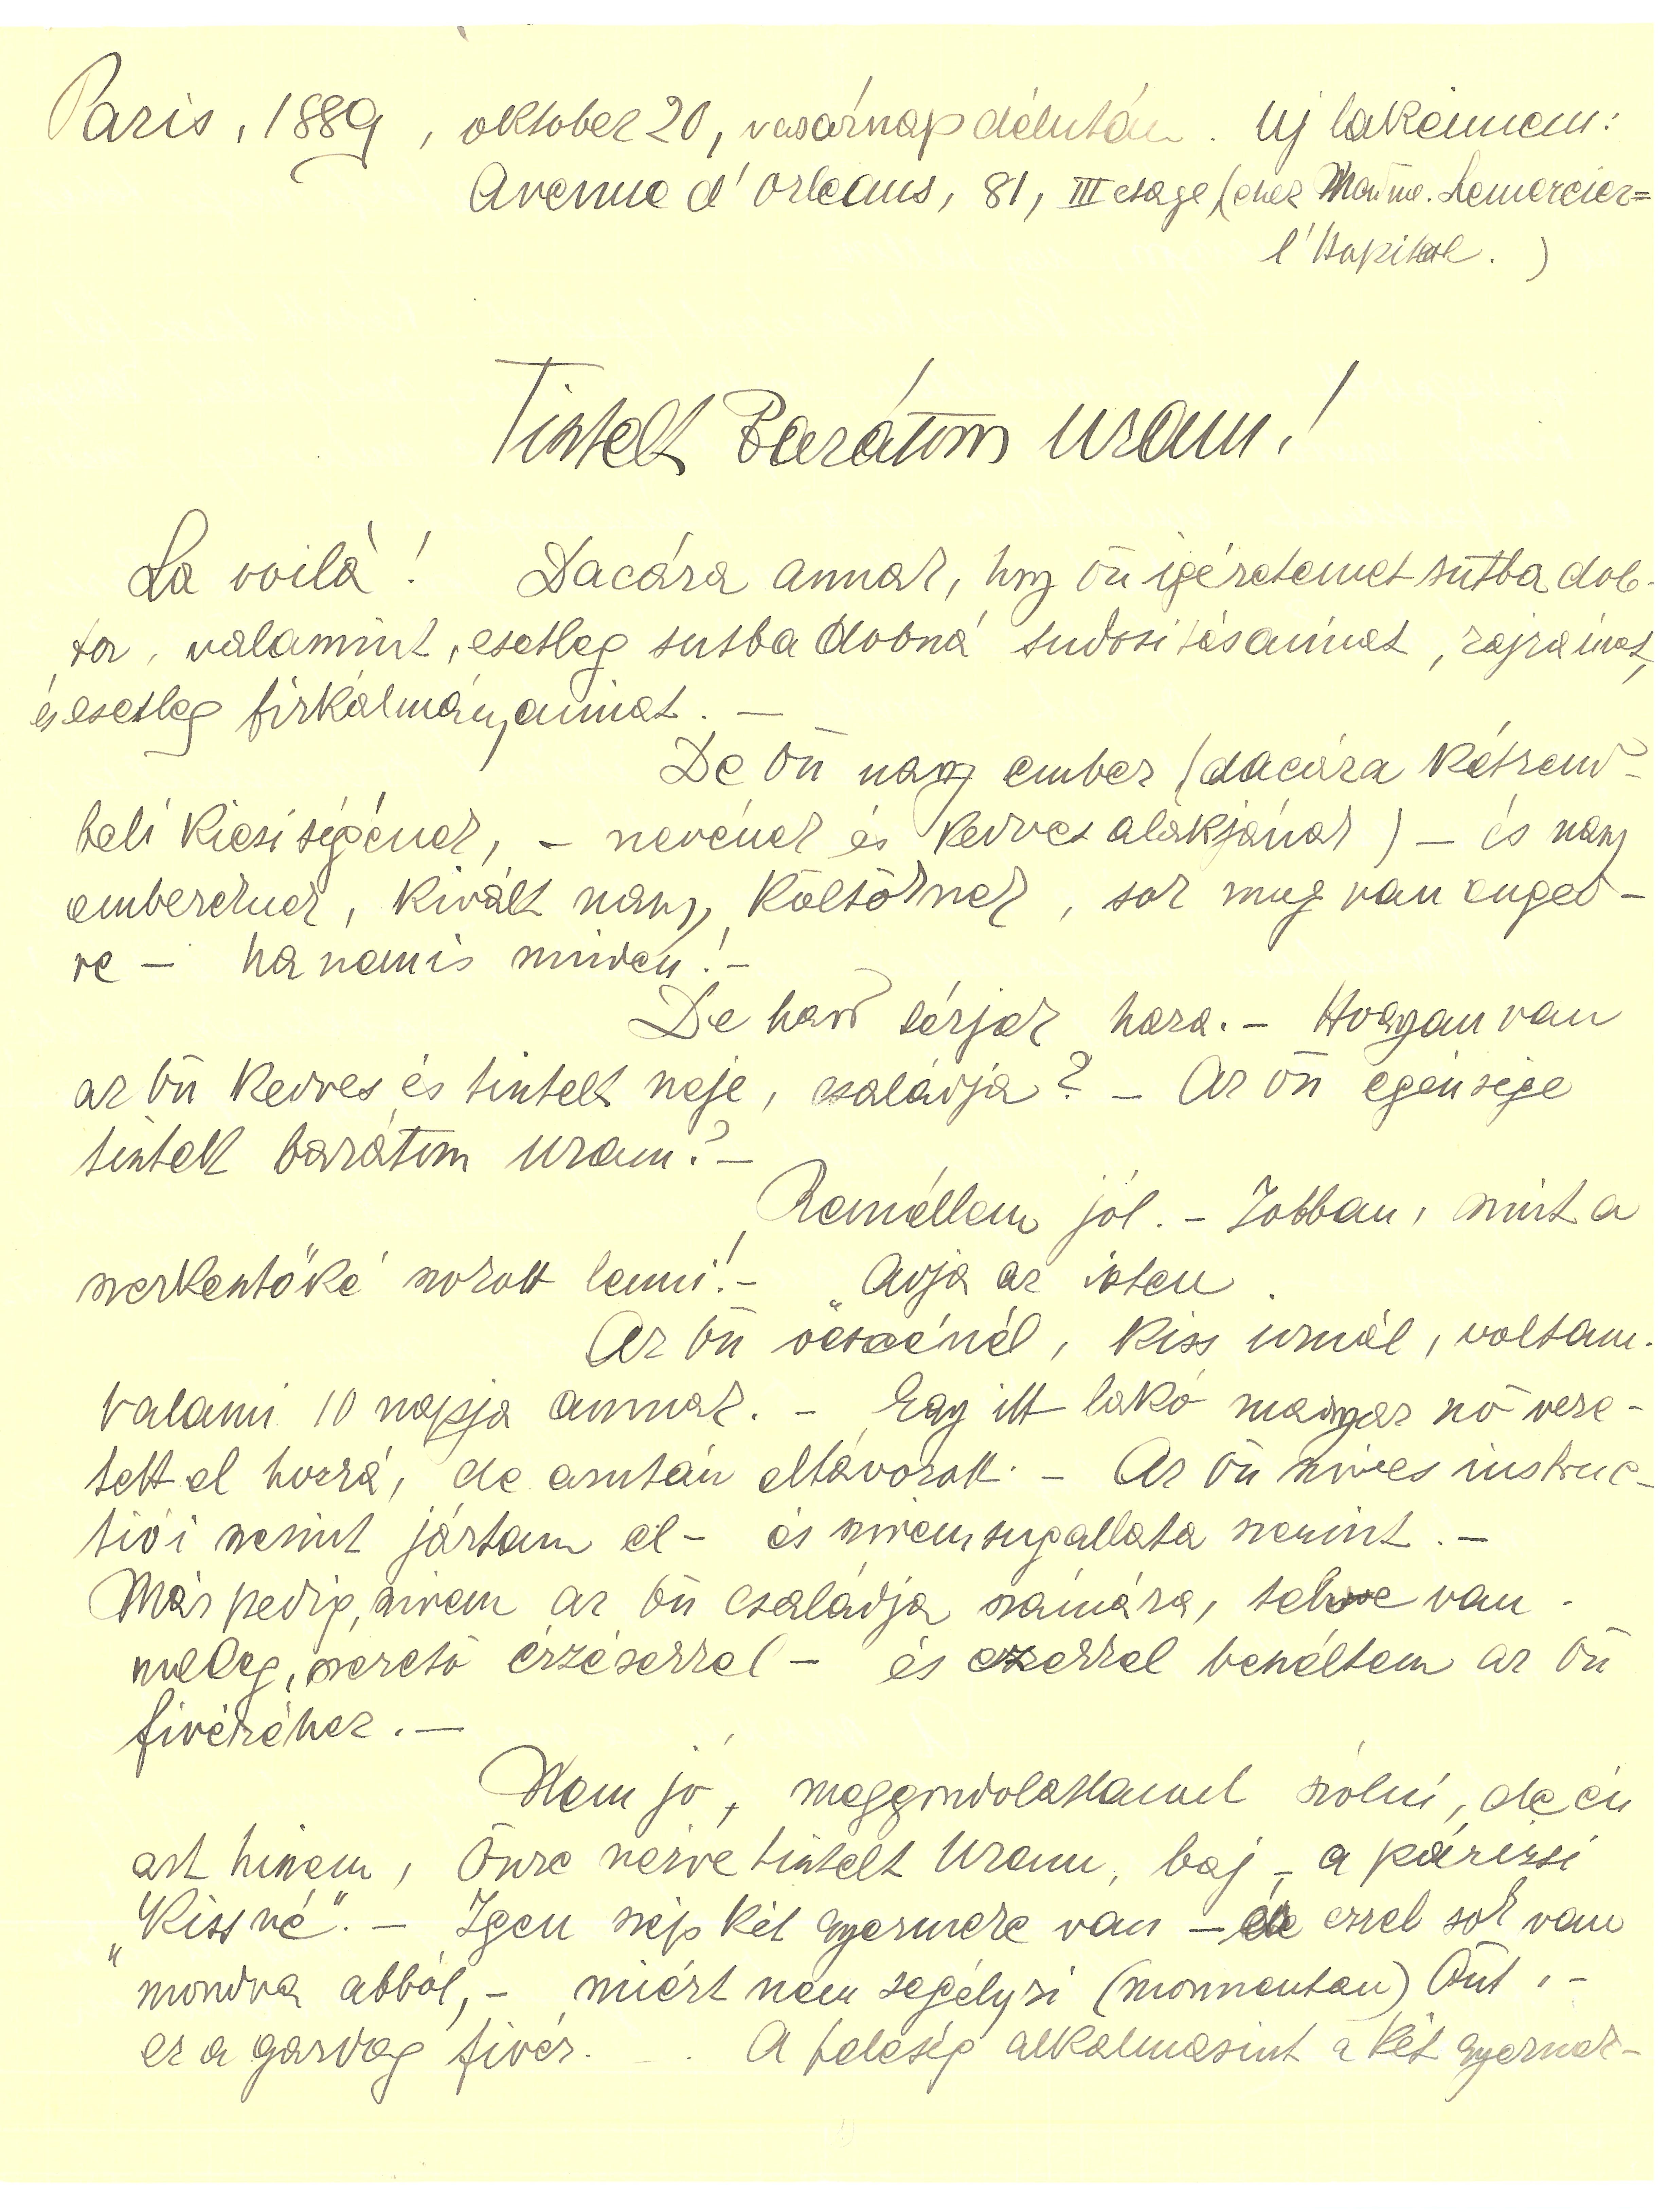 Paris, 1889, oktober 20, vasárnap délután. Uj lakcimem:
Avenue d'Orleans, 81, III etage (chez Mad̄me. Lemercier=
l'Hopital.)
Tisztelt Barátom Uram!
La voilà! Dacára annak, hogy Ön igéretemet sutba dob-
ta, valamint, esetleg sutba dobná tudositásaimat, rajzaimat,
és esetleg firkálmányaimat. —
De Ön nagy ember (dacára kétrend-
beli kicsiségének, – nevének és kedves alakjának) – és nagy
embereknek, kivált nagy költőknek, sok meg van enged-
ve – ha nem is minden! –
De had térjek haza. – Hogyan van
az Ön kedves és tisztelt neje, családja? – Az Ön egészsége
tisztelt barátom uram? –
Remélem jól. – Jobban, mint a
szerkesztőké szokott lenni! – Adja az isten.
Az Ön öcscsénél, Kiss urnál, voltam.
Valami 10 napja annak. – Egy itt lakó magyar nő veze-
tett el hozzá, de azután eltávozott. – Az Ön szives instruc-
tiói szerint jártam el – és szivem sugallata szerint. –
Már pedig, szivem az Ön családja számára, telve van
meleg, szerető érzésekkel – és ezekkel beszéltem az Ön
fivéréhez. —
Nem jó, meggondolatlanul szólni, de én
azt hiszem, Önre nézve tisztelt Uram, baj, – a párizsi
"Kissné". – Igen szép két gyermeke van – és ezzel sok van
mondva abból, – miért nem segélyzi (momentan) Önt, –
ez a gazdag fivér. – . A feleség alkalmasint a két gyermek-